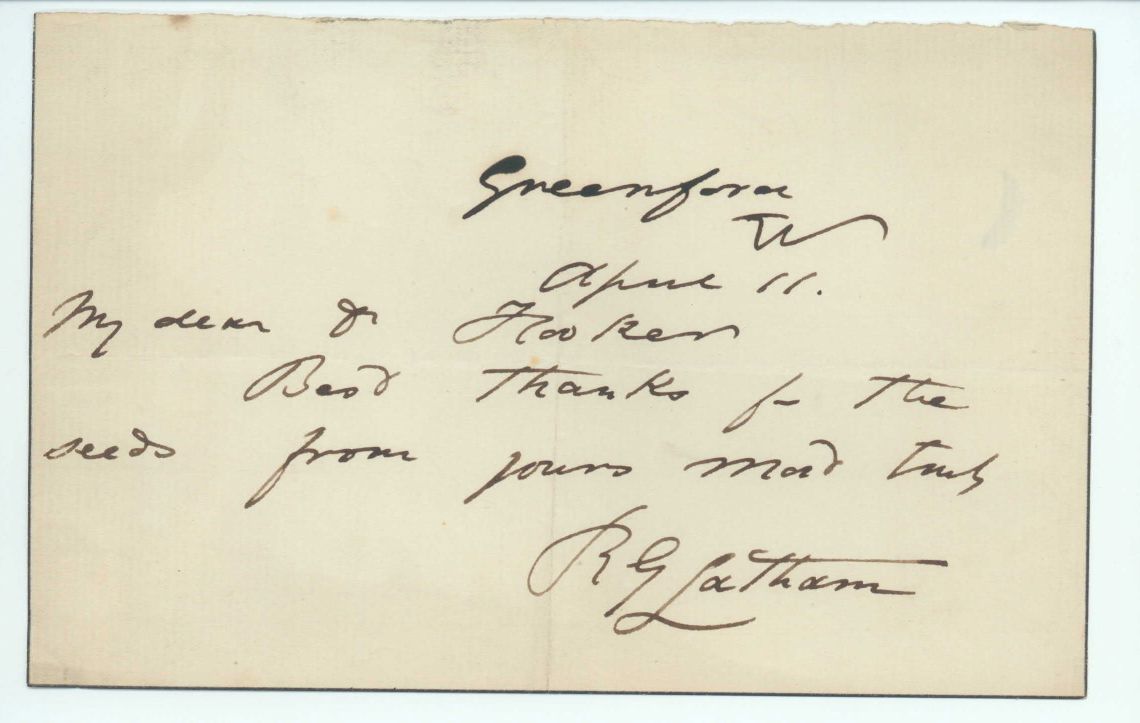 Greenford
W
April 11.
My dear Dr Hooker
Best thanks for the
seeds from yours most truly
R G Latham